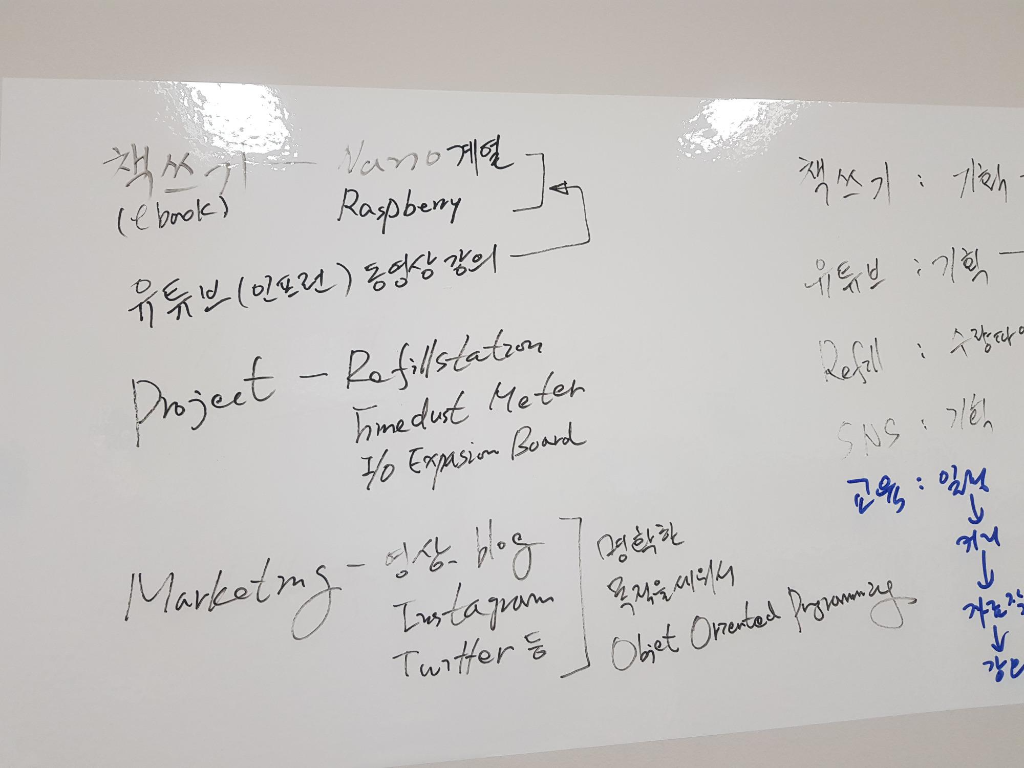 책쓰기 — Nano 계열
(ebook) Raspberry
유튜브(인프런) 동영상 강의
Project — Refillstation
Finedust Meter
I/O Expasion Board
Marketing — 영상 blog
Instagram
Twitter 등
명확한
목적을 세워서
Objet Oriented Programming
책쓰기 : 기획
유튜브 : 기획 —
Refill : 수량
SNS : 기획
교육 : 일정
↓
↓
↓